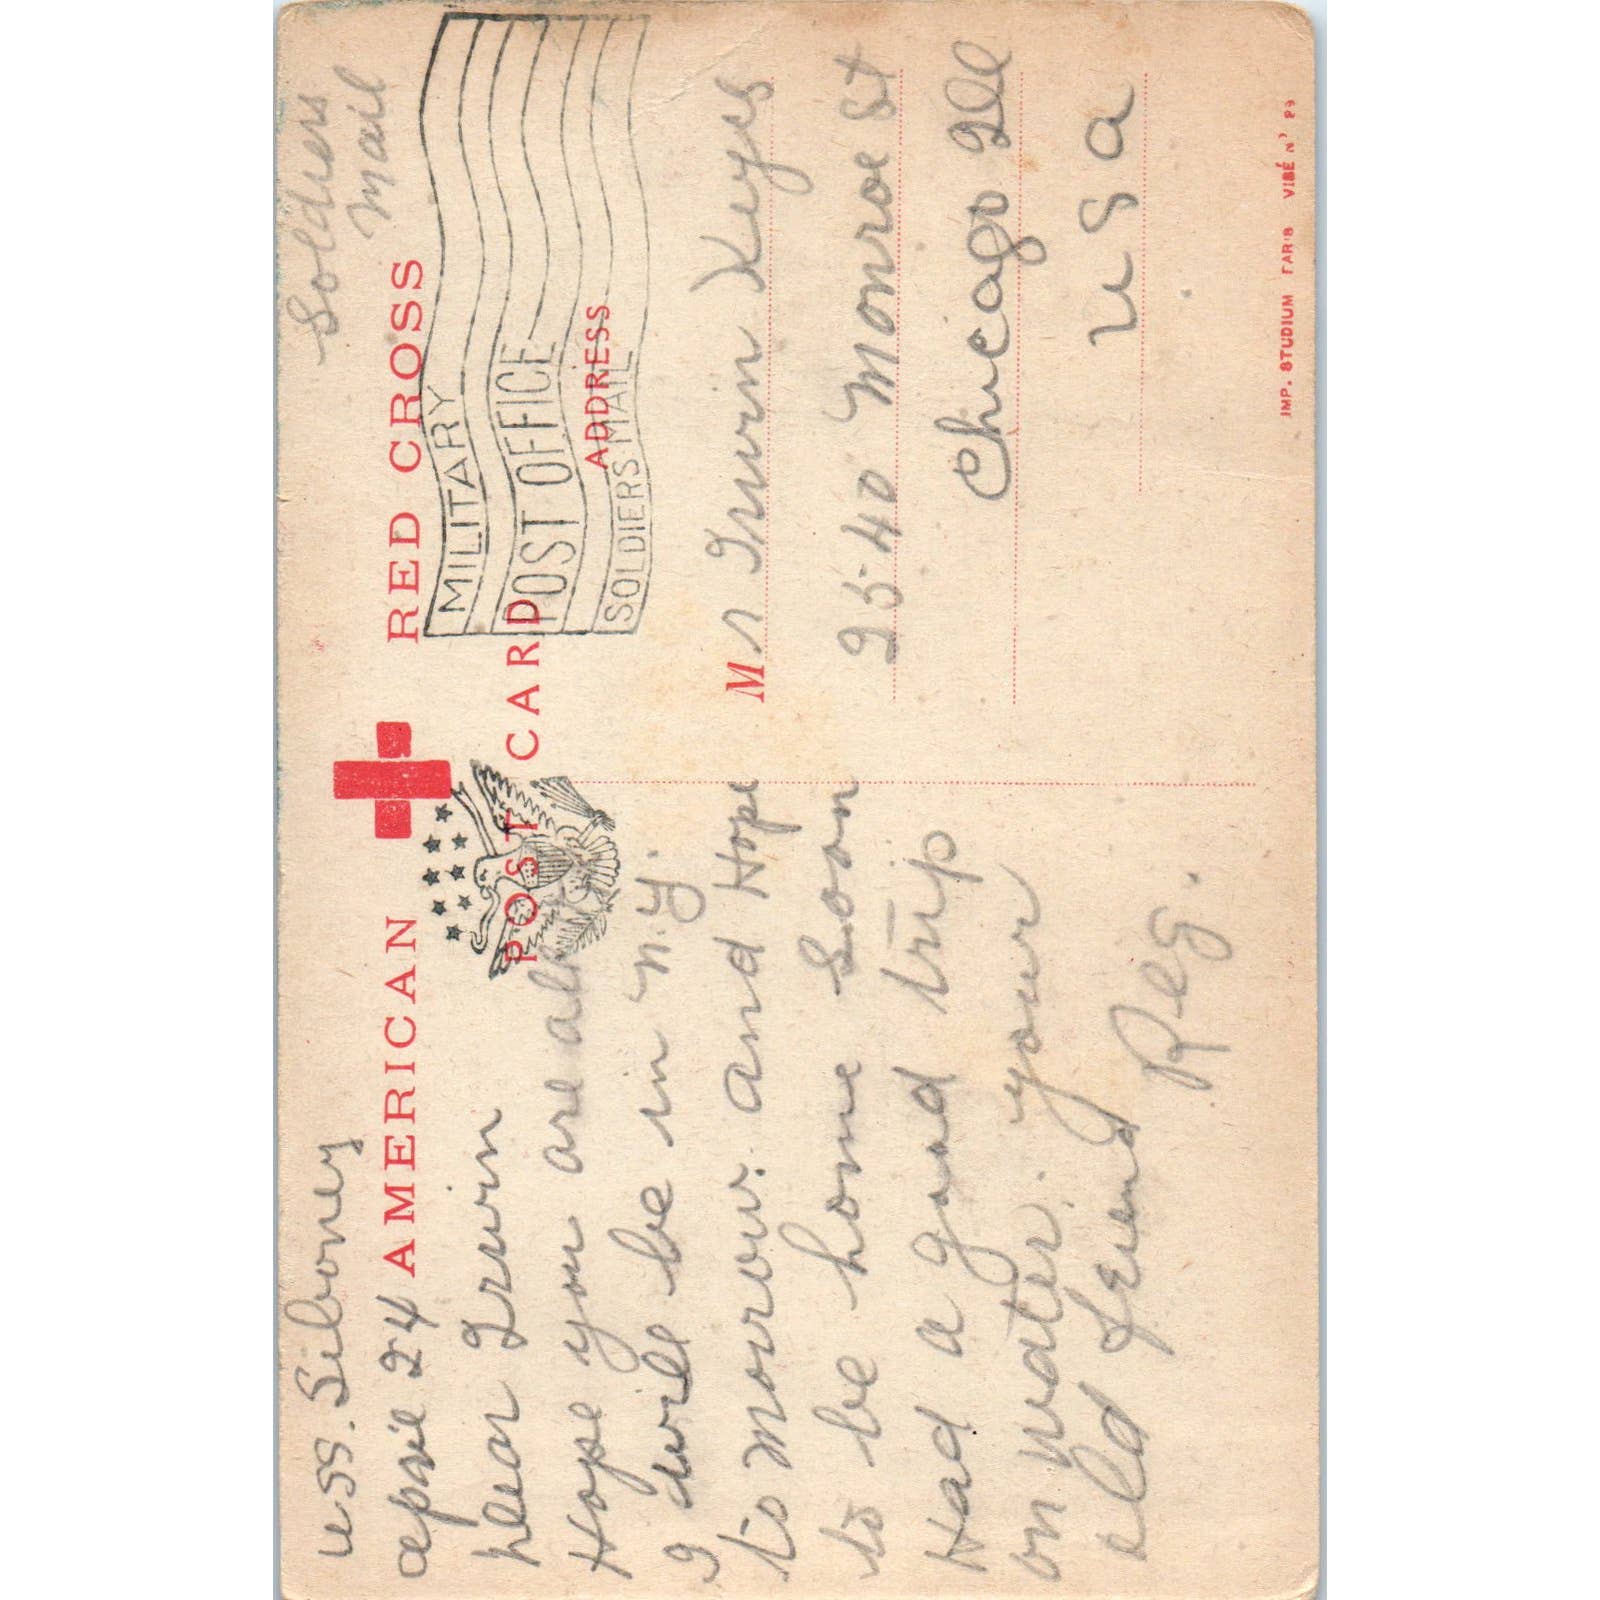 Soldiers
Mail
AMERICAN RED CROSS
POST CARD
MILITARY
POST OFFICE
SOLDIERS MAIL
ADDRESS
USS. Siboney
April 24
Dear Irwin
Hope you are all
I will be in N.Y.
to morrow. and Hope
to be home soon
Had a good trip
on water. your
old friend
Reg.
Mr Irwin Keyes
2540 Monroe St
Chicago Ill
U S A
IMP. STUDIUM PARIS VISÉ Nº